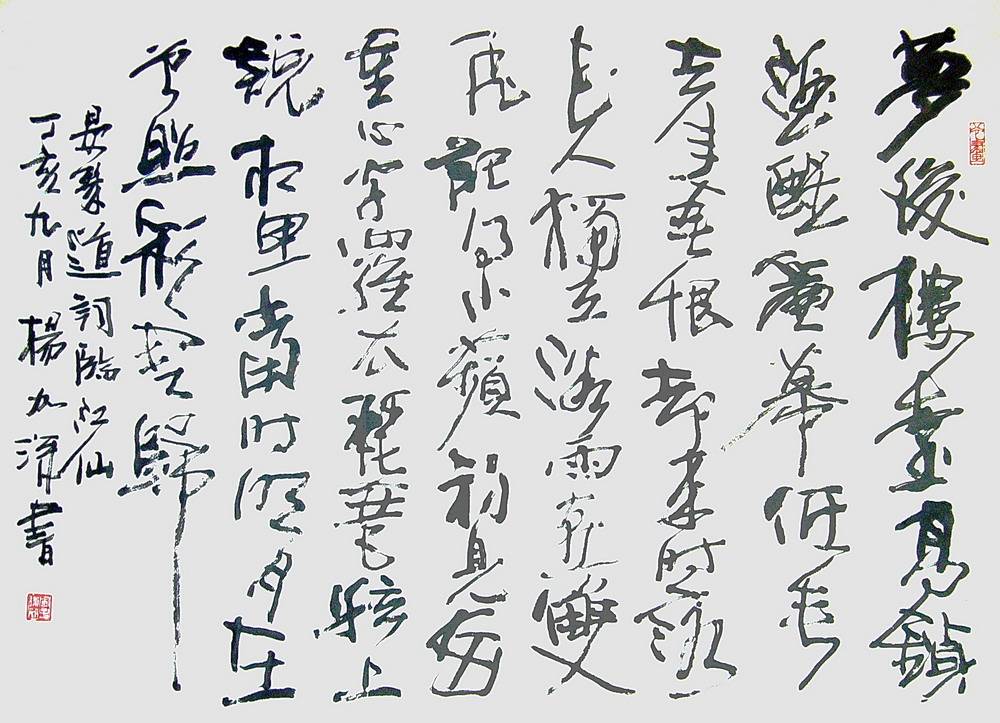 夢後樓臺高鎖
酒醒簾幕低垂
去年春恨却来时落
花人獨立微雨燕雙
飛記得小蘋初見兩
重心字羅衣琵琶絃上
説相思當时明月在
曾照彩雲歸
晏幾道詞臨江仙
丁亥九月楊加書